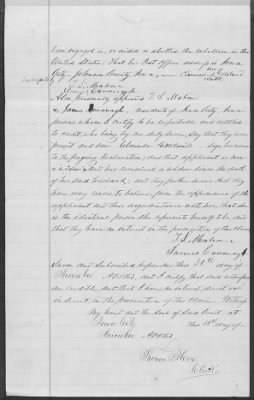 been engaged in or aided or abetted the rebellion in the
United States; That her Post office address is Iowa
City Johnson County Iowa,
In Presence of
T. S. Mahan
James Cavanagh
Also personally appeared T. S. Mahan
& James Cavanagh, residents of Iowa City, Iowa
persons whom I certify to be respectable and entitled
to credit, who being by me duly sworn, say that they were
present and saw Clarinda sign her name
to the foregoing declaration; and that applicant is now
a widow & has remained a widow since the death
of her said husband; and they further swear that they
have every reason to believe, from the appearance of the
applicant and their acquaintance with her, that she
is the identical person she represents herself to be, and
that they have no interest in the prosecution of this claim
T. S. Mahan
James Cavanagh
Sworn and Subscribed before me this day of
November AD 1863, and I certify that said witnesses
are credible, and that I have no interest, direct or
indirect, in the prosecution of this claim. Witness
my hand and the seal of said Court at
Iowa City this day of
November AD 1863